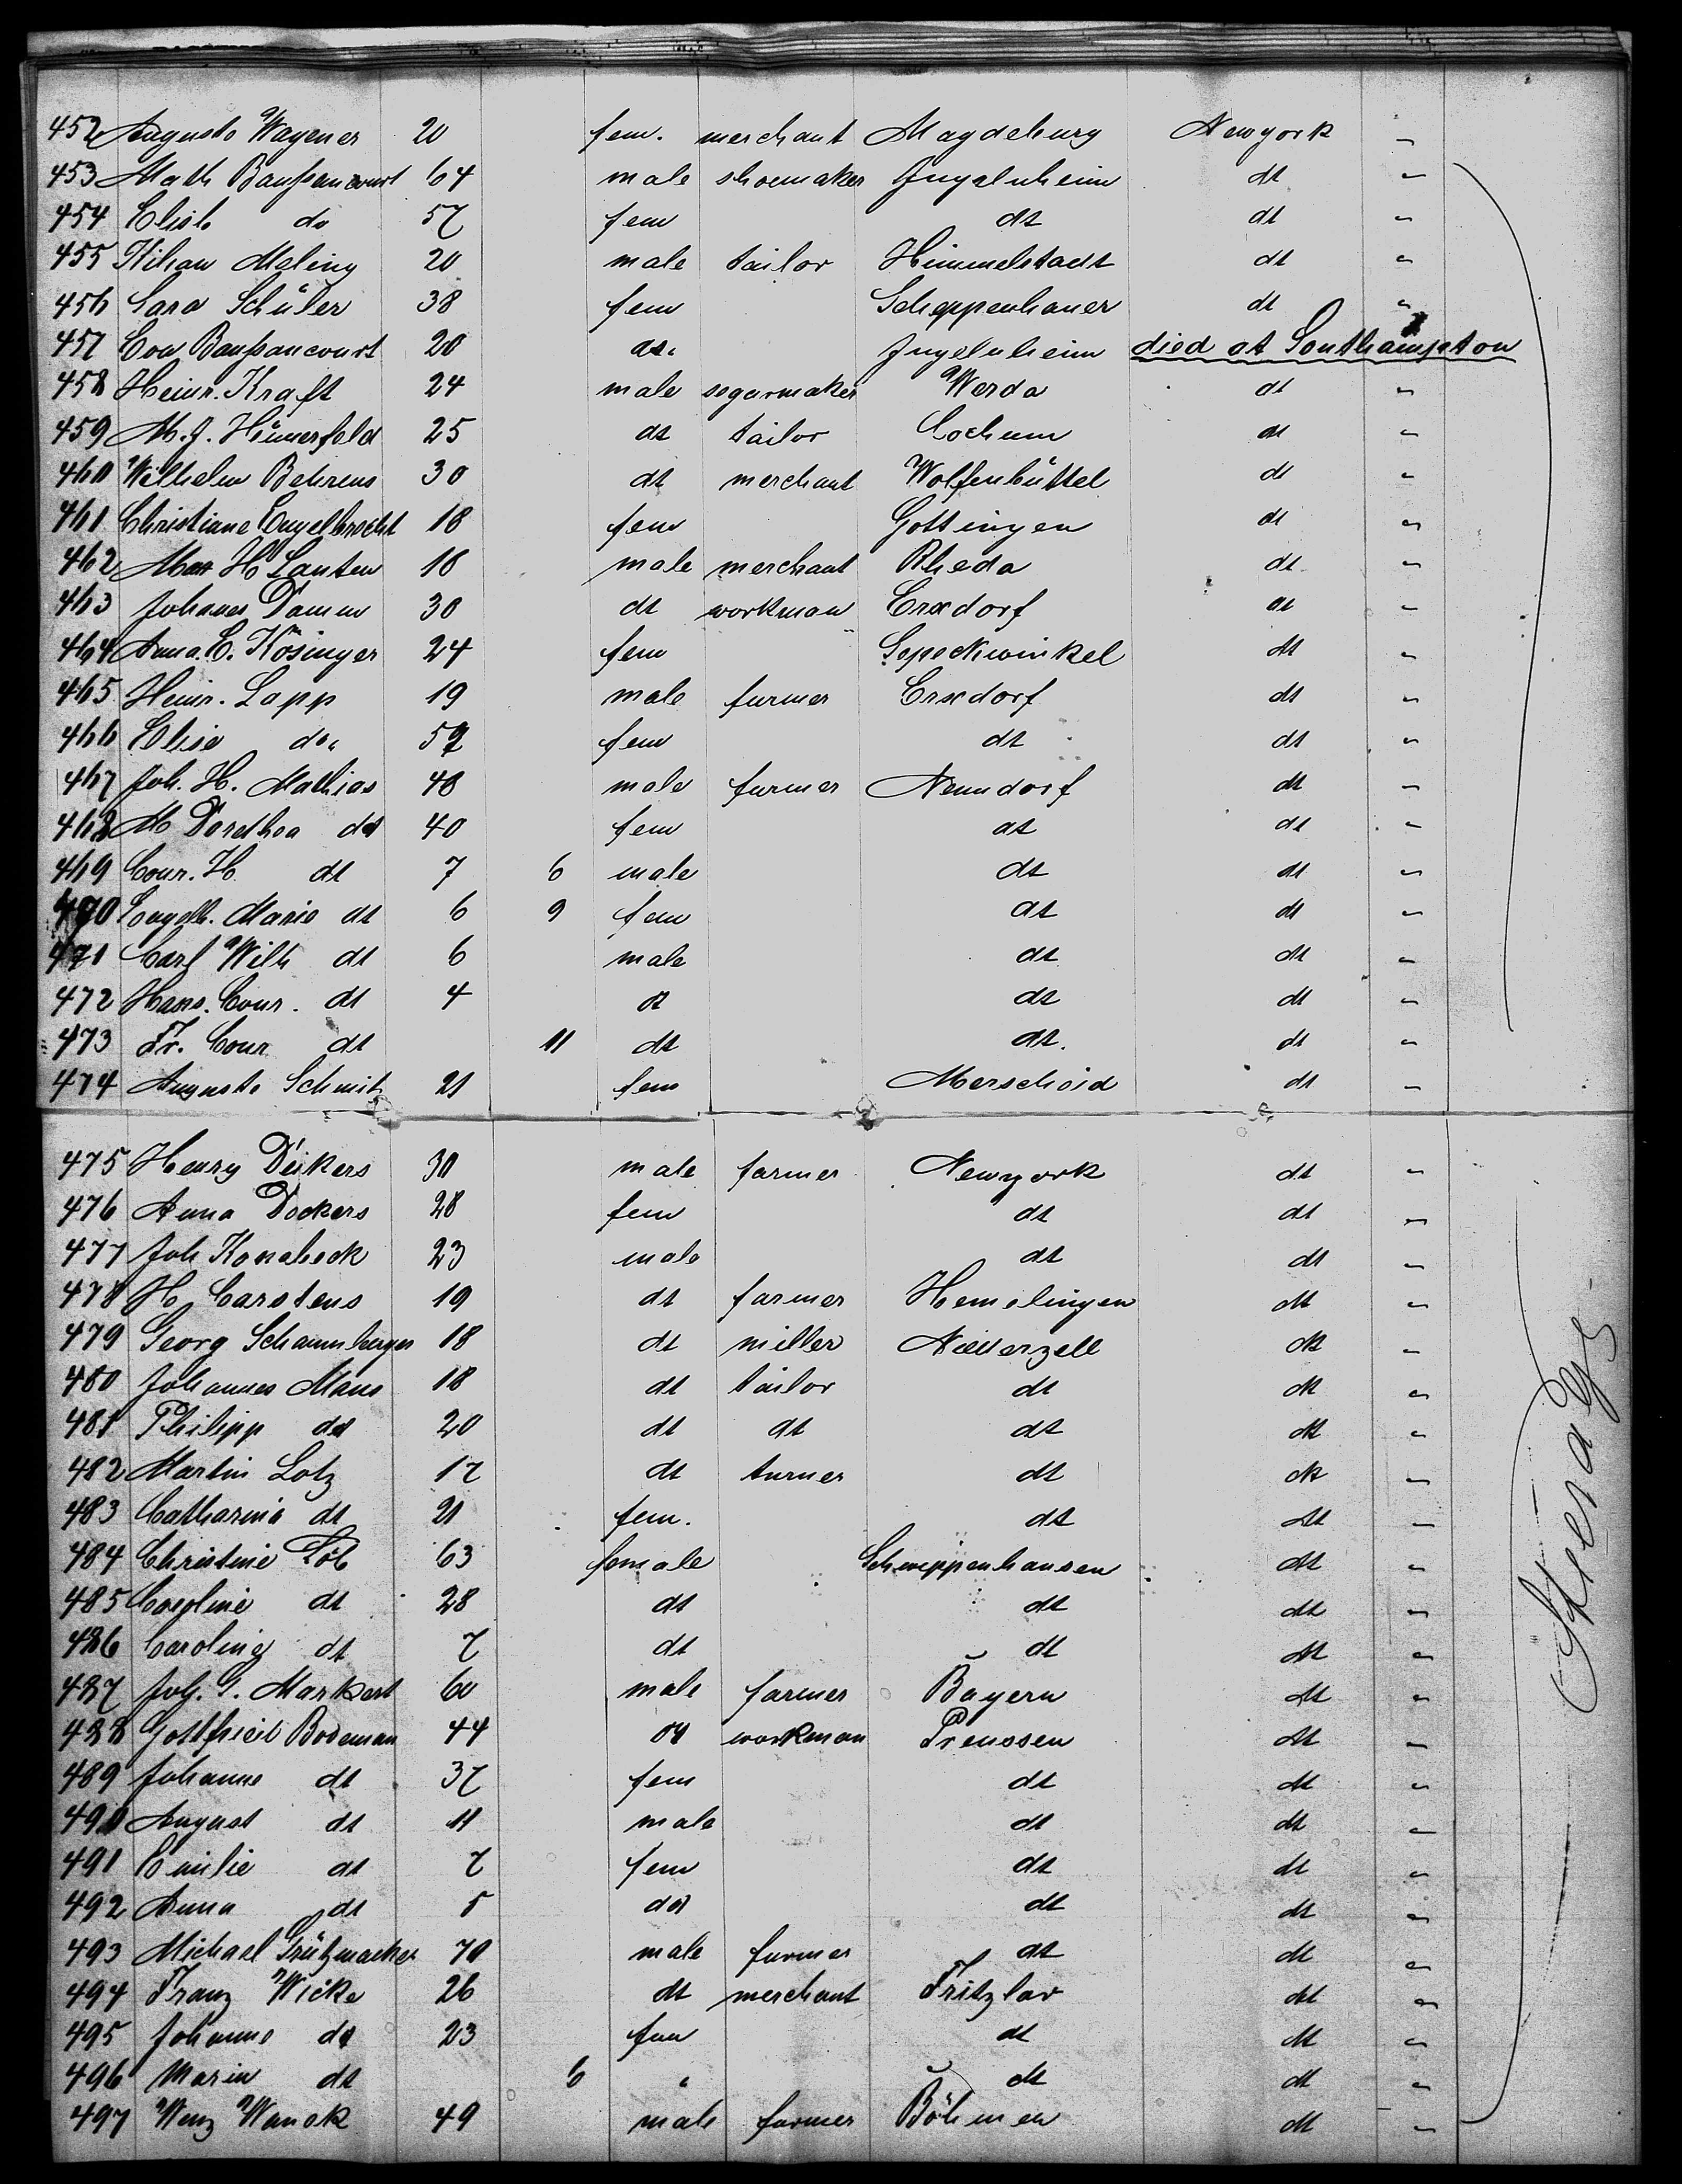 452 Auguste Wagener 20 fem. merchant Magdeburg Newyork "
453 Math Baußancourt 64 male shoemaker Jugelnheim dt "
454 Elisb do 57 fem dt dt "
455 Kilian Meling 20 male tailor Himmelstadt dt "
456 Cara Schüler 38 fem dt "
457 Baußancourt 20 do. Jugelnheim died at Southampton
458 Heinr. Kraft 24 male segarmaker Werda dt "
459 M. J. Hümerfeld 25 dt tailor Cochem dt "
460 Wilhelm Behrens 30 dt merchant Wolfenbüttel dt "
461 Christiane Engelbrecht 18 fem Gottingen dt "
462 H Lauten 18 male merchant Rheda dt "
463 Johannes Damm 30 dt workman Erxdorf dt "
464 Anna. C. Kösinger 24 fem Speckwinkel dt "
465 Heinr. Lapp 19 male farmer Erxdorf dt "
466 Elise do. fem dt dt "
467 Joh. H. Mathias 48 male farmer Nenndorf dt "
468 M Dorethea dt 40 fem dt dt "
469 Conr. H. dt 7 6 male dt dt "
470 Engelb. Marie dt 6 9 fem dt dt "
471 Carl Wilh dt 6 male dt dt "
472 Hans. Conr. dt 4 dt dt dt "
473 Fr. Conr dt 11 dt dt. dt "
474 Auguste Schmitz 21 fem Merscheid dt "
475 Henry Deikers 30 male farmer Newyork dt "
476 Anna Dockers 28 fem dt dt "
477 Joh Konebeck 23 male dt dt "
478 H Carstens 19 dt farmer Hemelingen dt "
479 Georg Schaumburger 18 dt miller Niederzell dt "
480 Johannes Maus 18 dt tailor dt dt "
481 Philipp dt 20 dt dt dt dt "
482 Martin Lotz 17 dt turner dt dt "
483 Catharina dt 21 fem. dt dt "
484 Christine Löb 63 female Schweppenhausen dt "
485 dt 28 dt dt dt "
486 Caroling dt 7 dt dt dt "
487 Joh. G. Markert 60 male farmer Bayern dt "
488 Gottfried Bodeman 44 dt workman Preussen dt "
489 Johanne dt 37 fem dt dt "
490 August dt 11 male dt dt "
491 Emilie dt 7 fem dt dt "
492 Anna dt 5 dt dt dt "
493 Michael Grützmacher 70 male farmer dt dt "
494 Franz Wicke 26 dt merchant Fritzlar dt "
495 Johanne dt 23 fem dt dt "
496 Marin dt 6 " dt dt "
497 Wenz Wanek 49 male farmer Böhmen dt "
Steerage